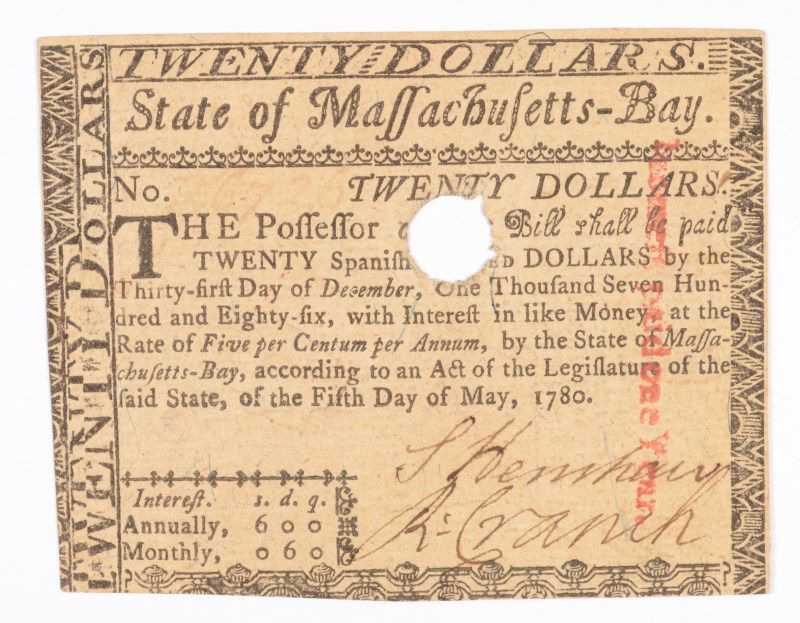 TWENTY DOLLARS.
State of Maſſachuſetts-Bay.
No. TWENTY DOLLARS.
THE Poſſeſſor Bill shall be paid
TWENTY Spaniſh DOLLARS by the
Thirty-firſt Day of December, One Thouſand Seven Hun-
dred and Eighty-ſix, with Intereſt in like Money, at the
Rate of Five per Centum per Annum, by the State of Maſſa-
chuſetts-Bay, according to an Act of the Legiſlature of the
ſaid State, of the Fifth Day of May, 1780.
S Henshaw
R: Cranch
Intereſt. s. d. q.
Annually, 6 0 0
Monthly, 0 6 0
TWENTY DOLLARS
Year.